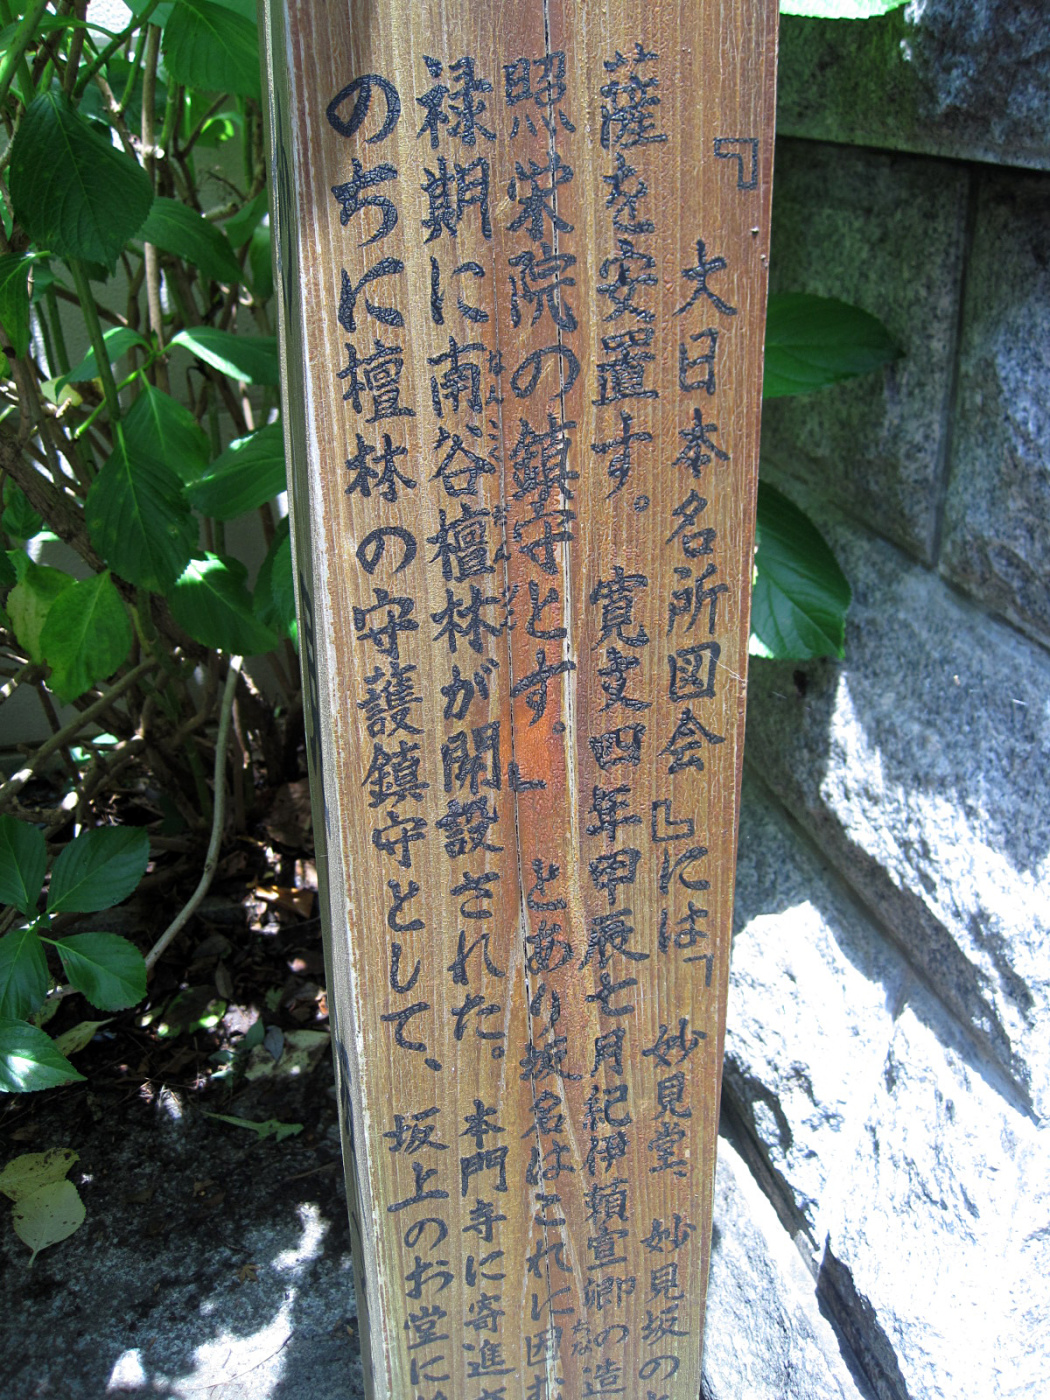 『大日本名所図会』には「妙見堂 妙見坂の
薩を安置す。寛文四年甲辰七月紀伊頼宣卿の造
照栄院の鎮守とす。」とあり坂名はこれに因む
ちな
禄期に南谷檀林が開設された。本門寺に寄進
のちに檀林の守護鎮守として、坂上のお堂に